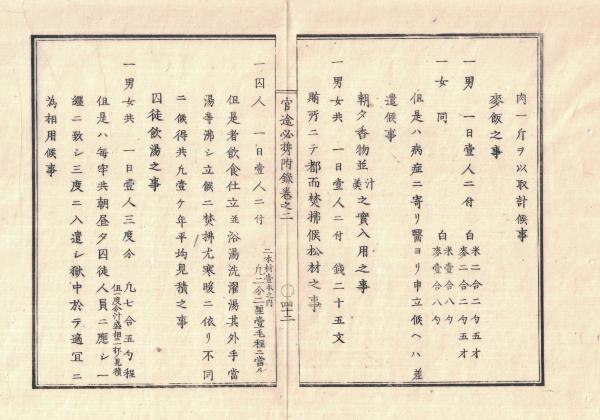 肉一斤ヲ以取計候事
麥飯之事
一男 一日壹人ニ付 白米二合二勺五才
麥二合二勺五才
一女 同 白米壹合八勺
麥壹合八勺
但是ハ病症ニ寄リ醫ヨリ申立候ヘハ差
遣候事
朝夕香物並汁菜之實入用之事
一男女共 一日壹人ニ付 錢二十五文
賄所ニテ都而焚拂候松材之事
官途必携附錄卷之二 〇四十二
一囚人 一日壹人ニ付 二本材壹本之內
九二分二厘壹毛程ニ當ル
但是者飮食仕立並浴湯洗濯湯其外手當
湯等沸シ立候ニ焚拂尤寒暖ニ依リ不同
ニ候得共九壹ケ年平均見積之事
囚徒飮湯之事
一男女共 一日壹人三度分 九七合五勺程
但一度分汁盛相二杯見積
但是ハ每牢共朝晝夕囚徒人員ニ應シ一
纒ニ致シ三度ニ入遣シ獄中於テ適宜ニ
為相用候事